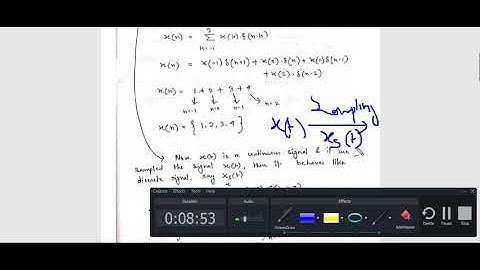 x(n) = Σ x(k) δ(n-k)
x(n) = x(-1) δ(n+1) + x(0) δ(n) + x(1) δ(n-1)
+ x(2) δ(n-2)
x(n) = 1 + 2 + 3 + 4
n=-1 n=0 n=1 n=2
x(n) = { 1, 2, 3, 4 }
Sampling
x(t)
xs(t)
Now x(t) is a continuous signal & if we
sampled the signal x(t), then it behaves like
discrete signal, say xs(t)
Capture Effects Tools Help
Duration
Audio
Effects
0:08:53
Delete
Pause
Stop